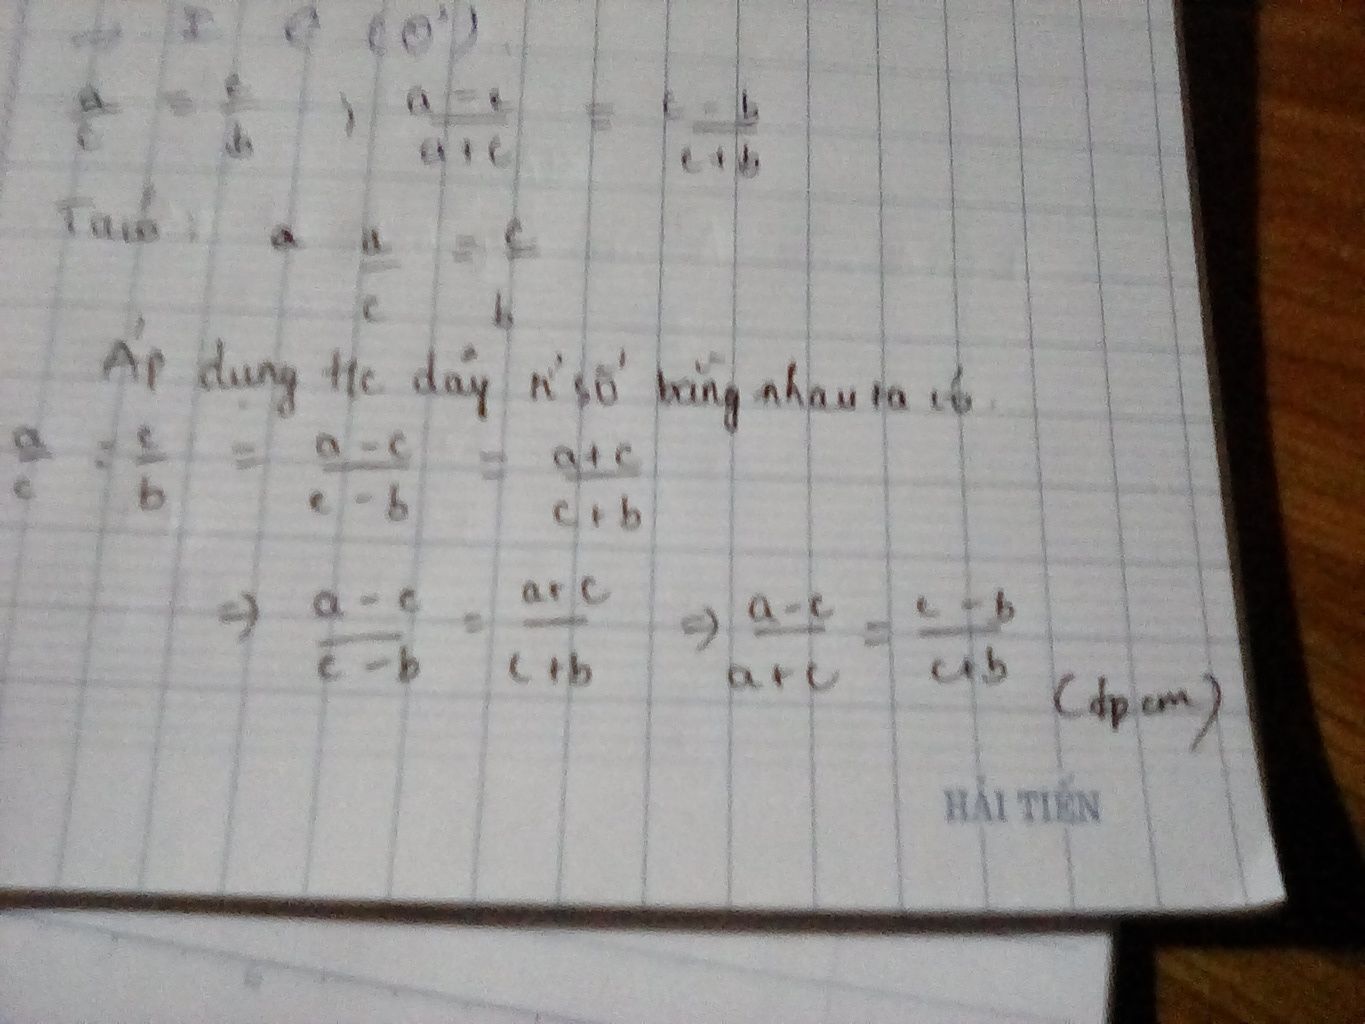 => I ∈ (O')
a/c = c/b ; a-c/a+c = c-b/c+b
Ta có: a a/c = c/b
Áp dụng t/c dãy tỉ số bằng nhau ta có
a/c = c/b = a-c/c-b = a+c/c+b
=> a-c/c-b = a+c/c+b => a-c/a+c = c-b/c+b
(đpcm)
HẢI TIẾN